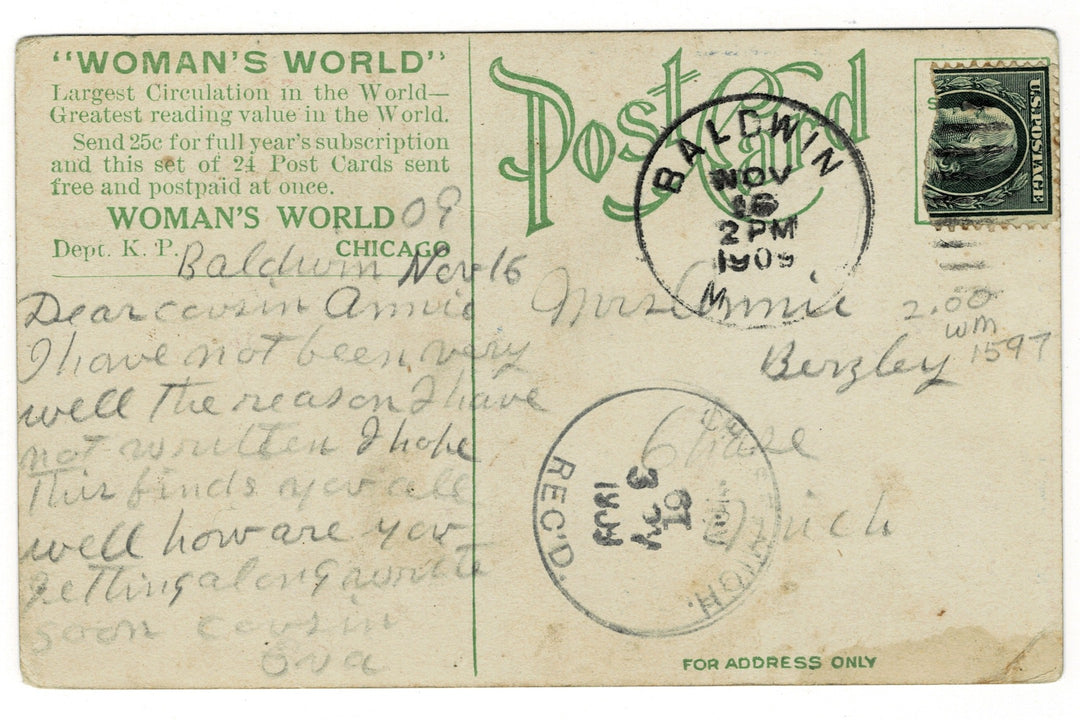 "WOMAN'S WORLD"
Largest Circulation in the World—
Greatest reading value in the World.
Send 25c for full year's subscription
and this set of 24 Post Cards sent
free and postpaid at once.
WOMAN'S WORLD
Dept. K. P. CHICAGO
09
Baldwin Nov 16
Dear cousin Annie
I have not been very
well the reason I have
not written I hope
this finds you all
well how are you
getting along write
soon cousin
Ova
Post Card
BALDWIN
NOV
16
2 PM
1909
M
U.S. POSTAGE
Mrs Annie
Berzley
Chase
Mich
2.00
WM
1597
REC'D.
MICH.
NOV
16
3 PM
1909
FOR ADDRESS ONLY